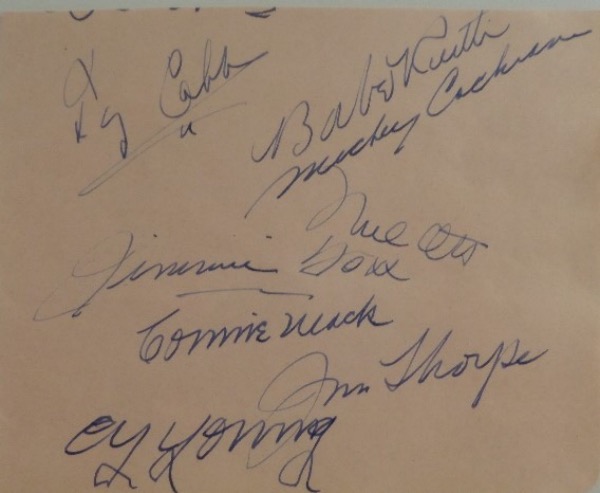 Ty Cobb
Babe Ruth
Mickey Cochrane
Mel Ott
Jimmie Foxx
Connie Mack
Jim Thorpe
Cy Young